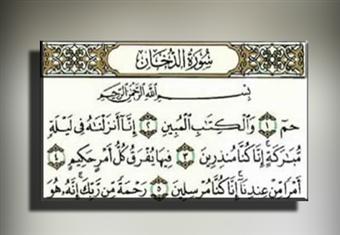 سُورَةُ الدُّخَانِ
بِسْمِ اللَّهِ الرَّحْمَٰنِ الرَّحِيمِ
حمٓ ١ وَالْكِتَٰبِ الْمُبِينِ ٢ إِنَّآ أَنزَلْنَٰهُ فِى لَيْلَةٍ
مُّبَٰرَكَةٍ إِنَّا كُنَّا مُنذِرِينَ ٣ فِيهَا يُفْرَقُ كُلُّ أَمْرٍ حَكِيمٍ ٤
أَمْرًا مِّنْ عِندِنَآ إِنَّا كُنَّا مُرْسِلِينَ ٥ رَحْمَةً مِّن رَّبِّكَ إِنَّهُۥ هُوَ